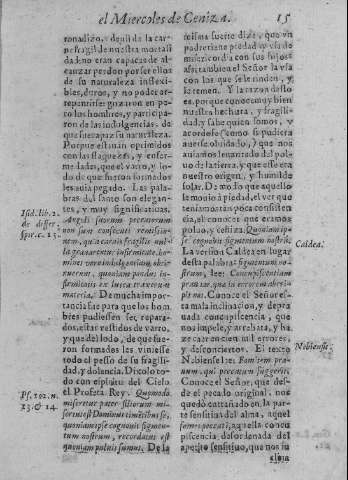 el Miercoles de Ceniza. 15
de la car-
ne fragil de nuestra mortali
dad: no eran capaces de al-
cançar perdon por ser ellos
de su naturaleza inflexi-
bles, duros, y no poder ar-
repentirse gozaron en po-
co los hombres, y participa-
ron de las indulgencias, de
que sirve su naturaleza.
Porque estauan oprimidos
con las flaquezas, y enfer-
medades, que el varro, y lo-
do de que fueron formados
les auia pegado. Las pala-
bras del santo son elegan-
tes, y muy significatiuas.
Angeli suorum peccatorum
non sunt consecuti remissio-
nem, quia carnis fragilis nul-
la grauarentur infirmitate, ho-
mines vero indulgentiam obti-
nuerunt, quoniam pondus in-
firmitatis ex luteæ traxerunt
materia. De mucha impor-
tancia fue para que los hom
bres pudiessen ser repara-
dos, estar vestidos de varro,
y que del lodo, de que fue-
ron formados les viniesse
todo el peso de su fragili-
dad, y dolencia. Dixolo to-
do con espiritu del Cielo
el Profeta Rey. Quomodo
miseretur pater filiorum mi-
sertus est Dominus timētibus se,
quoniam ipse cognouit figmen-
tum nostrum, recordatus est
quoniam puluis sumus. De la
Isid. lib. 2.
de differ.
Spir. c. 13.
Ps. 102. n.
13. & 14
misma suerte dize, que vn
padre tiene piedad, y vsa de
misericordia con sus hijos
assi tambien el Señor la vsa
con los que se le rinden, y
le temen. Y la razon desto
es, porque conoce muy bien
nuestra hechura, y fragili-
dad, y sabe quien somos, y
acordose (como si pudiera
auerse oluidado,) que nos
auiamos leuantado del pol-
uo de la tierra, y que este era
nuestro origen, y humilde
solar. De modo que aquello
le mouio à piedad, el ver que
teniamos tã poca consisten-
cia, el conocer que eramos
poluo, y ceniza. Quoniam ip-
se cognouit figmentum nostrũ.
La version Caldea en lugar
desta palabra: figmentum no-
strum, lee: Concupiscentiam
prauam, quæ in errorem abri-
pit nos. Conoce el Señor es-
ta mala inclinacion, y depra
uada concupiscencia, que
nos impele, y arrebata, y ha
ze caer en en mil errores, y
desconciertos. El texto
Nobiense lee: Fomitem pra-
uum, qui peccatum suggerit.
Conoce el Señor, que des-
de el pecado original, nos
quedò entrañado en la par-
te sensitiua del alma, aquel
fomes peccati, aquella concu
piscencia, desordenada del
apetito sensitiuo, que nos in
clina
Caldea.
Nobiense.